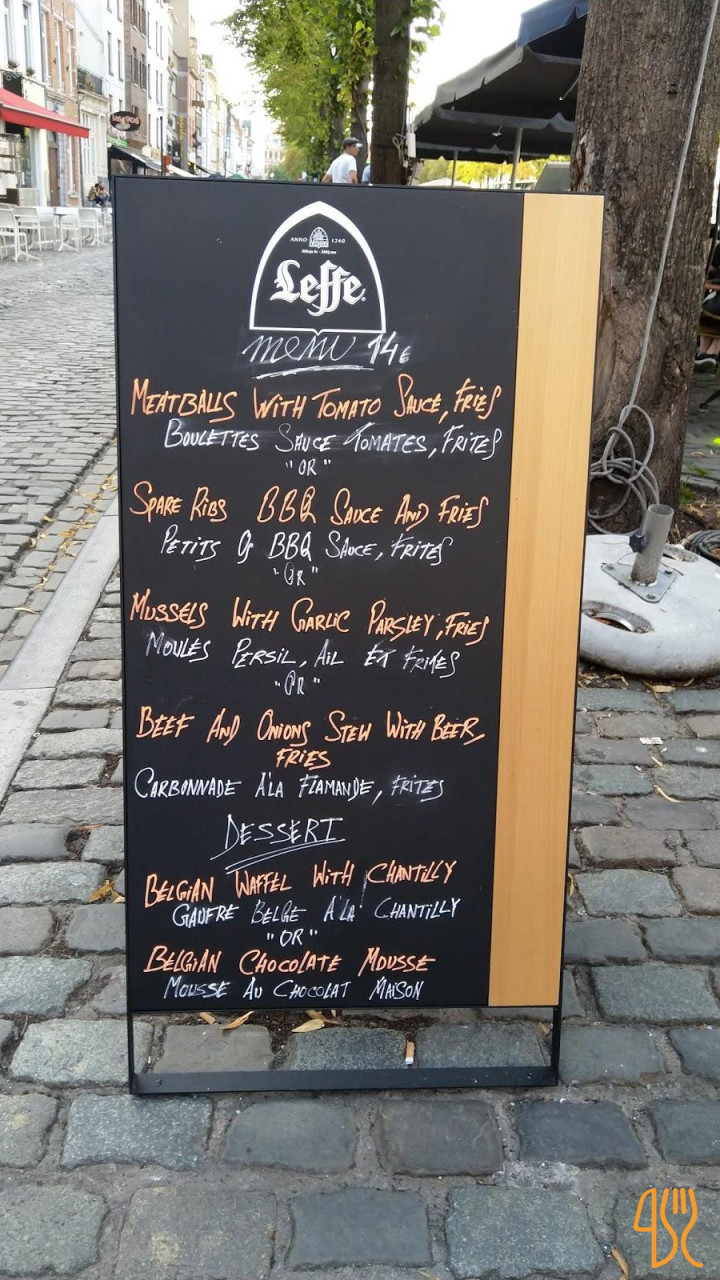 ANNO 1240
Leffe
menu 14€
MEATBALLS WITH TOMATO SAUCE, FRIES
BOULETTES SAUCE TOMATES, FRITES
"OR"
SPARE RIBS BBQ SAUCE AND FRIES
PETITS Os BBQ SAUCE, FRITES
"OR"
MUSSELS WITH GARLIC PARSLEY, FRIES
MOULES PERSIL, AIL ET FRITES
"OR"
BEEF AND ONIONS STEW WITH BEER,
FRIES
CARBONNADE À LA FLAMANDE, FRITES
DESSERT
BELGIAN WAFFEL WITH CHANTILLY
GAUFRE BELGE À LA CHANTILLY
"OR"
BELGIAN CHOCOLATE MOUSSE
MOUSSE AU CHOCOLAT MAISON